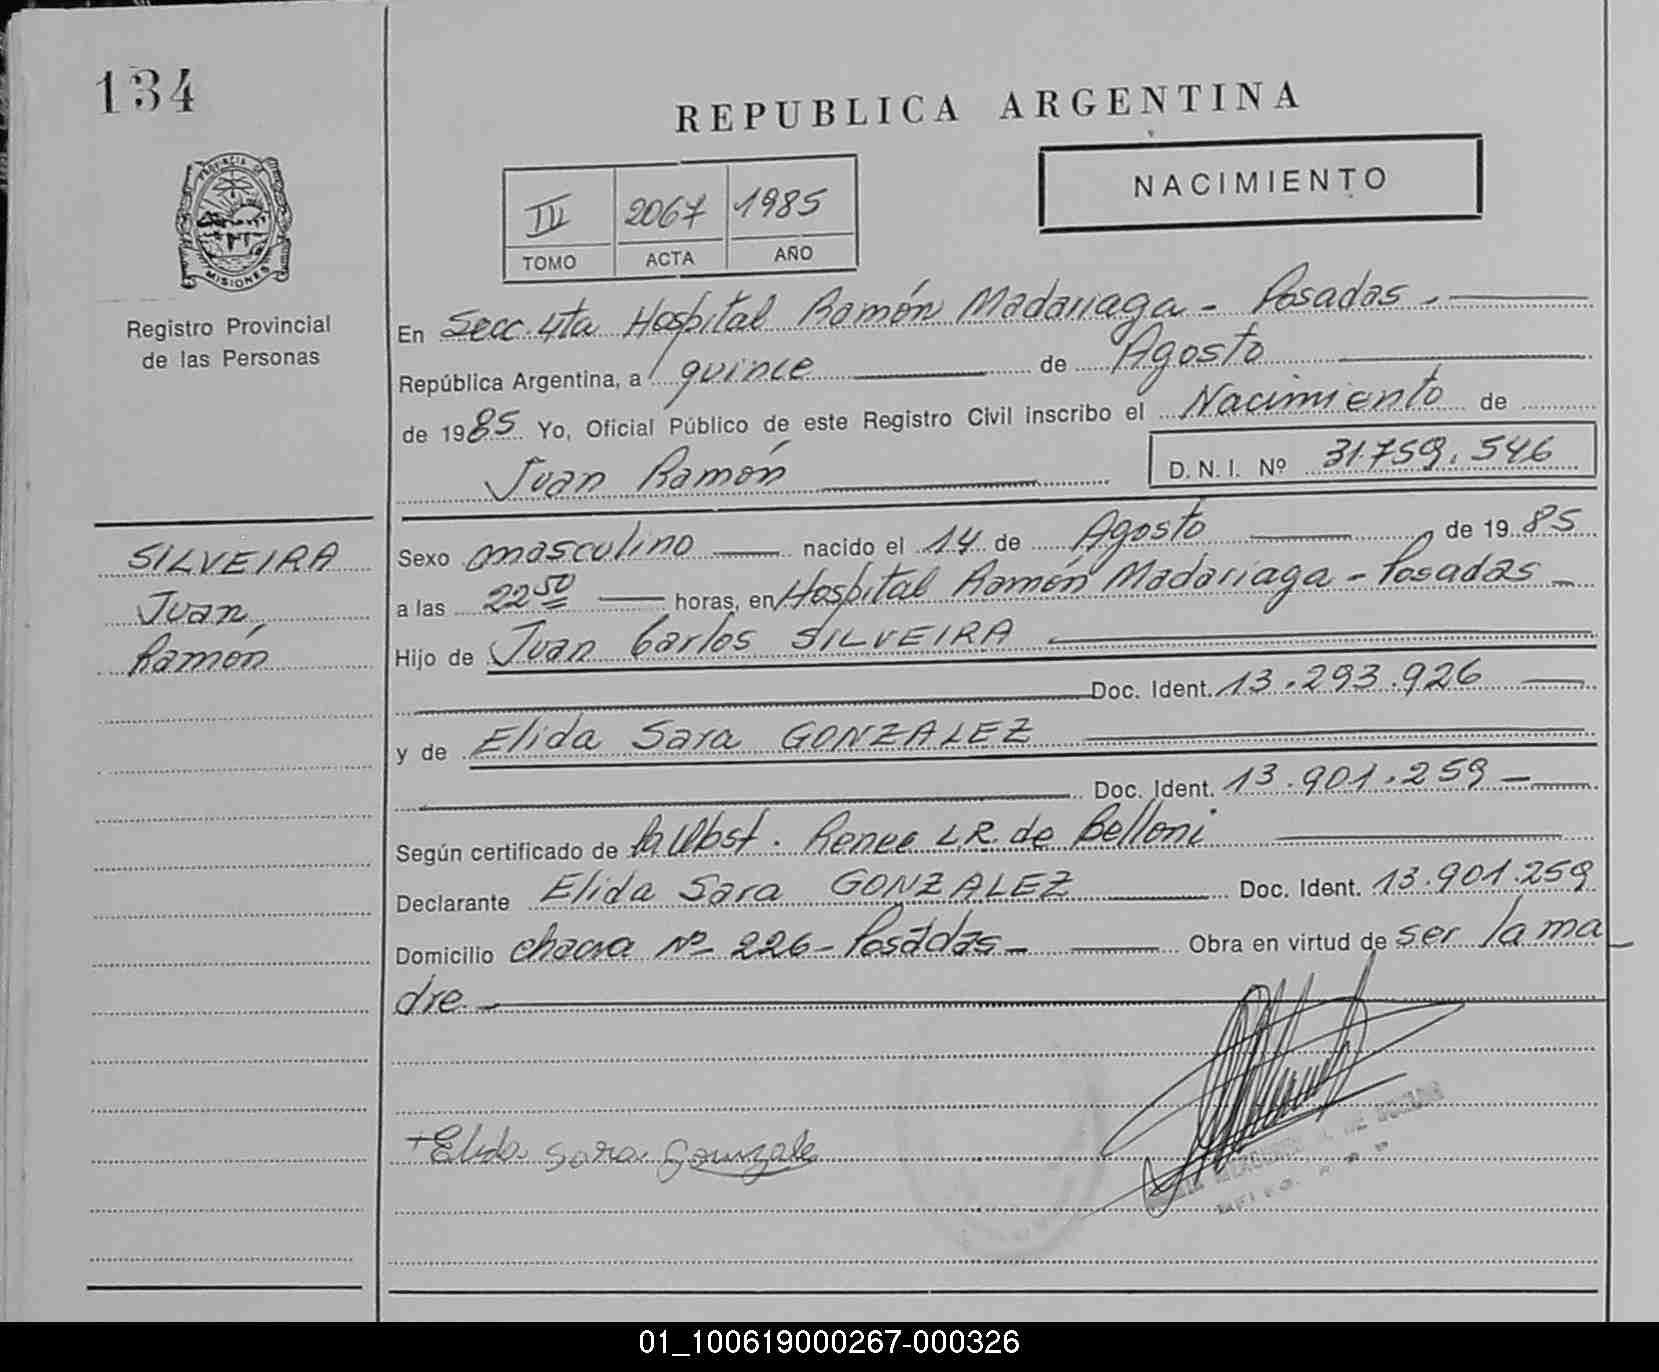 134
REPUBLICA ARGENTINA
PROVINCIA DE
MISIONES
Registro Provincial
de las Personas
NACIMIENTO
III 2067 1985
TOMO ACTA AÑO
En Secc. 4ta Hospital Ramón Madariaga - Posadas.
República Argentina, a quince de Agosto
de 1985. Yo, Oficial Público de este Registro Civil inscribo el Nacimiento de
Juan Ramón D.N.I. Nº 31.759.546
SILVEIRA
Juan
Ramón
Sexo masculino nacido el 14 de Agosto de 1985
a las 22 50 horas, en Hospital Ramón Madariaga - Posadas
Hijo de Juan Carlos SILVEIRA
Doc. Ident. 13.293.926
y de Elida Sara GONZALEZ
Doc. Ident. 13.901.259
Según certificado de Obst. Renee L.R. de Belloni
Declarante Elida Sara GONZALEZ Doc. Ident. 13.901.259
Domicilio chacra Nº 226 - Posadas - Obra en virtud de ser la ma
dre.
+Elida Sara Gonzale
01_100619000267-000326